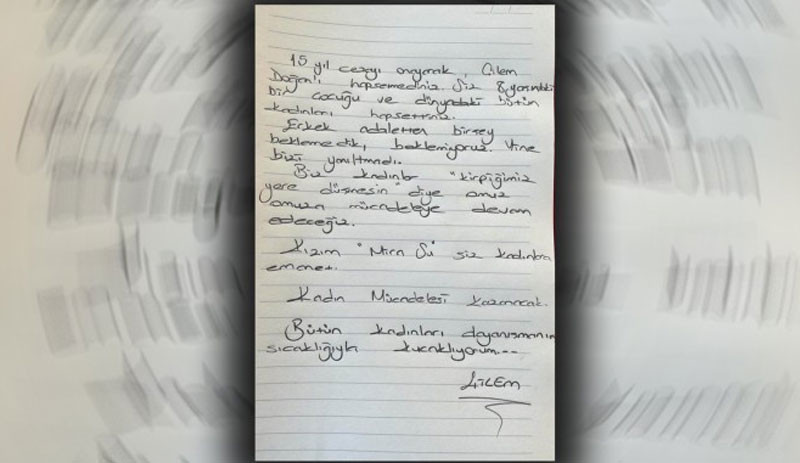 15 yıl cezayı onayarak, Çilem
Doğan'ı hapsemediniz. Siz 8 yaşındaki
bir çocuğu ve dünyadaki bütün
kadınları hapsettiniz.
Erkek adaletten birşey
beklemedik, beklemiyoruz. Yine
bizi yanıltmadı.
Biz kadınlar "kirpiğimiz
yere düşmesin" diye omuz
omuza mücadeleye devam
edeceğiz.
Kızım "Mira Su" siz kadınlara
emanet.
Kadın Mücadelesi kazanacak.
Bütün kadınları dayanışmanın
sıcaklığıyla kucaklıyorum...
ÇİLEM